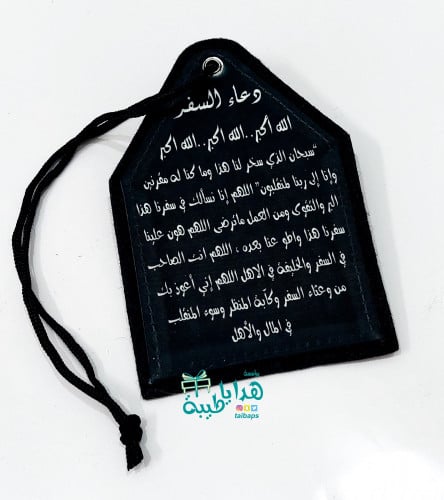 دعاء السفر
الله اكبر..الله اكبر..الله اكبر
"سبحان الذي سخر لنا هذا وما كنا له مقرنين
وإنا إلى ربنا لمنقلبون" اللهم إنا نسألك في سفرنا هذا
البر والتقوى ومن العمل ماترضى اللهم هون علينا
سفرنا هذا واطو عنا بعده ، اللهم انت الصاحب
في السفر والخليفة في الاهل اللهم إني أعوذ بك
من وعثاء السفر وكآبة المنظر وسوء المنقلب
في المال والأهل
هدايا طيبة
taibaps